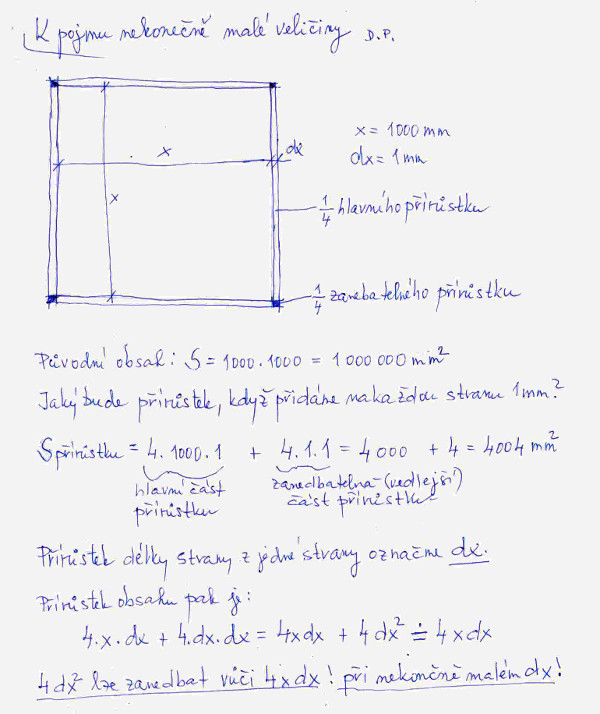 K pojmu nekonečně malé veličiny D.P.
x = 1000 mm
dx = 1 mm
dx
x
x
1/4 hlavního přírůstku
1/4 zanebatelného přírůstku
Původní obsah: S = 1000.1000 = 1 000 000 mm²
Jaký bude přírůstek, když přidáme na každou stranu 1mm?
S přírůstku = 4.1000.1 + 4.1.1 = 4000 + 4 = 4004 mm²
hlavní část přírůstku
zanedbatelná (vedlejší) část přírůstku
Přírůstek délky strany z jedné strany označme dx.
Přírůstek obsahu pak je:
4.x.dx + 4.dx.dx = 4xdx + 4dx² ≐ 4xdx
4dx² lze zanedbat vůči 4xdx! při nekončně malém dx!